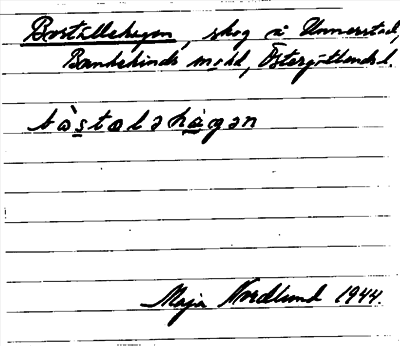 Borstallehagen, skog å Unnerstad,
Bankekinds sn o hd, Östergötland.
bòstaləhàgən
Maja Nordlund 1944.